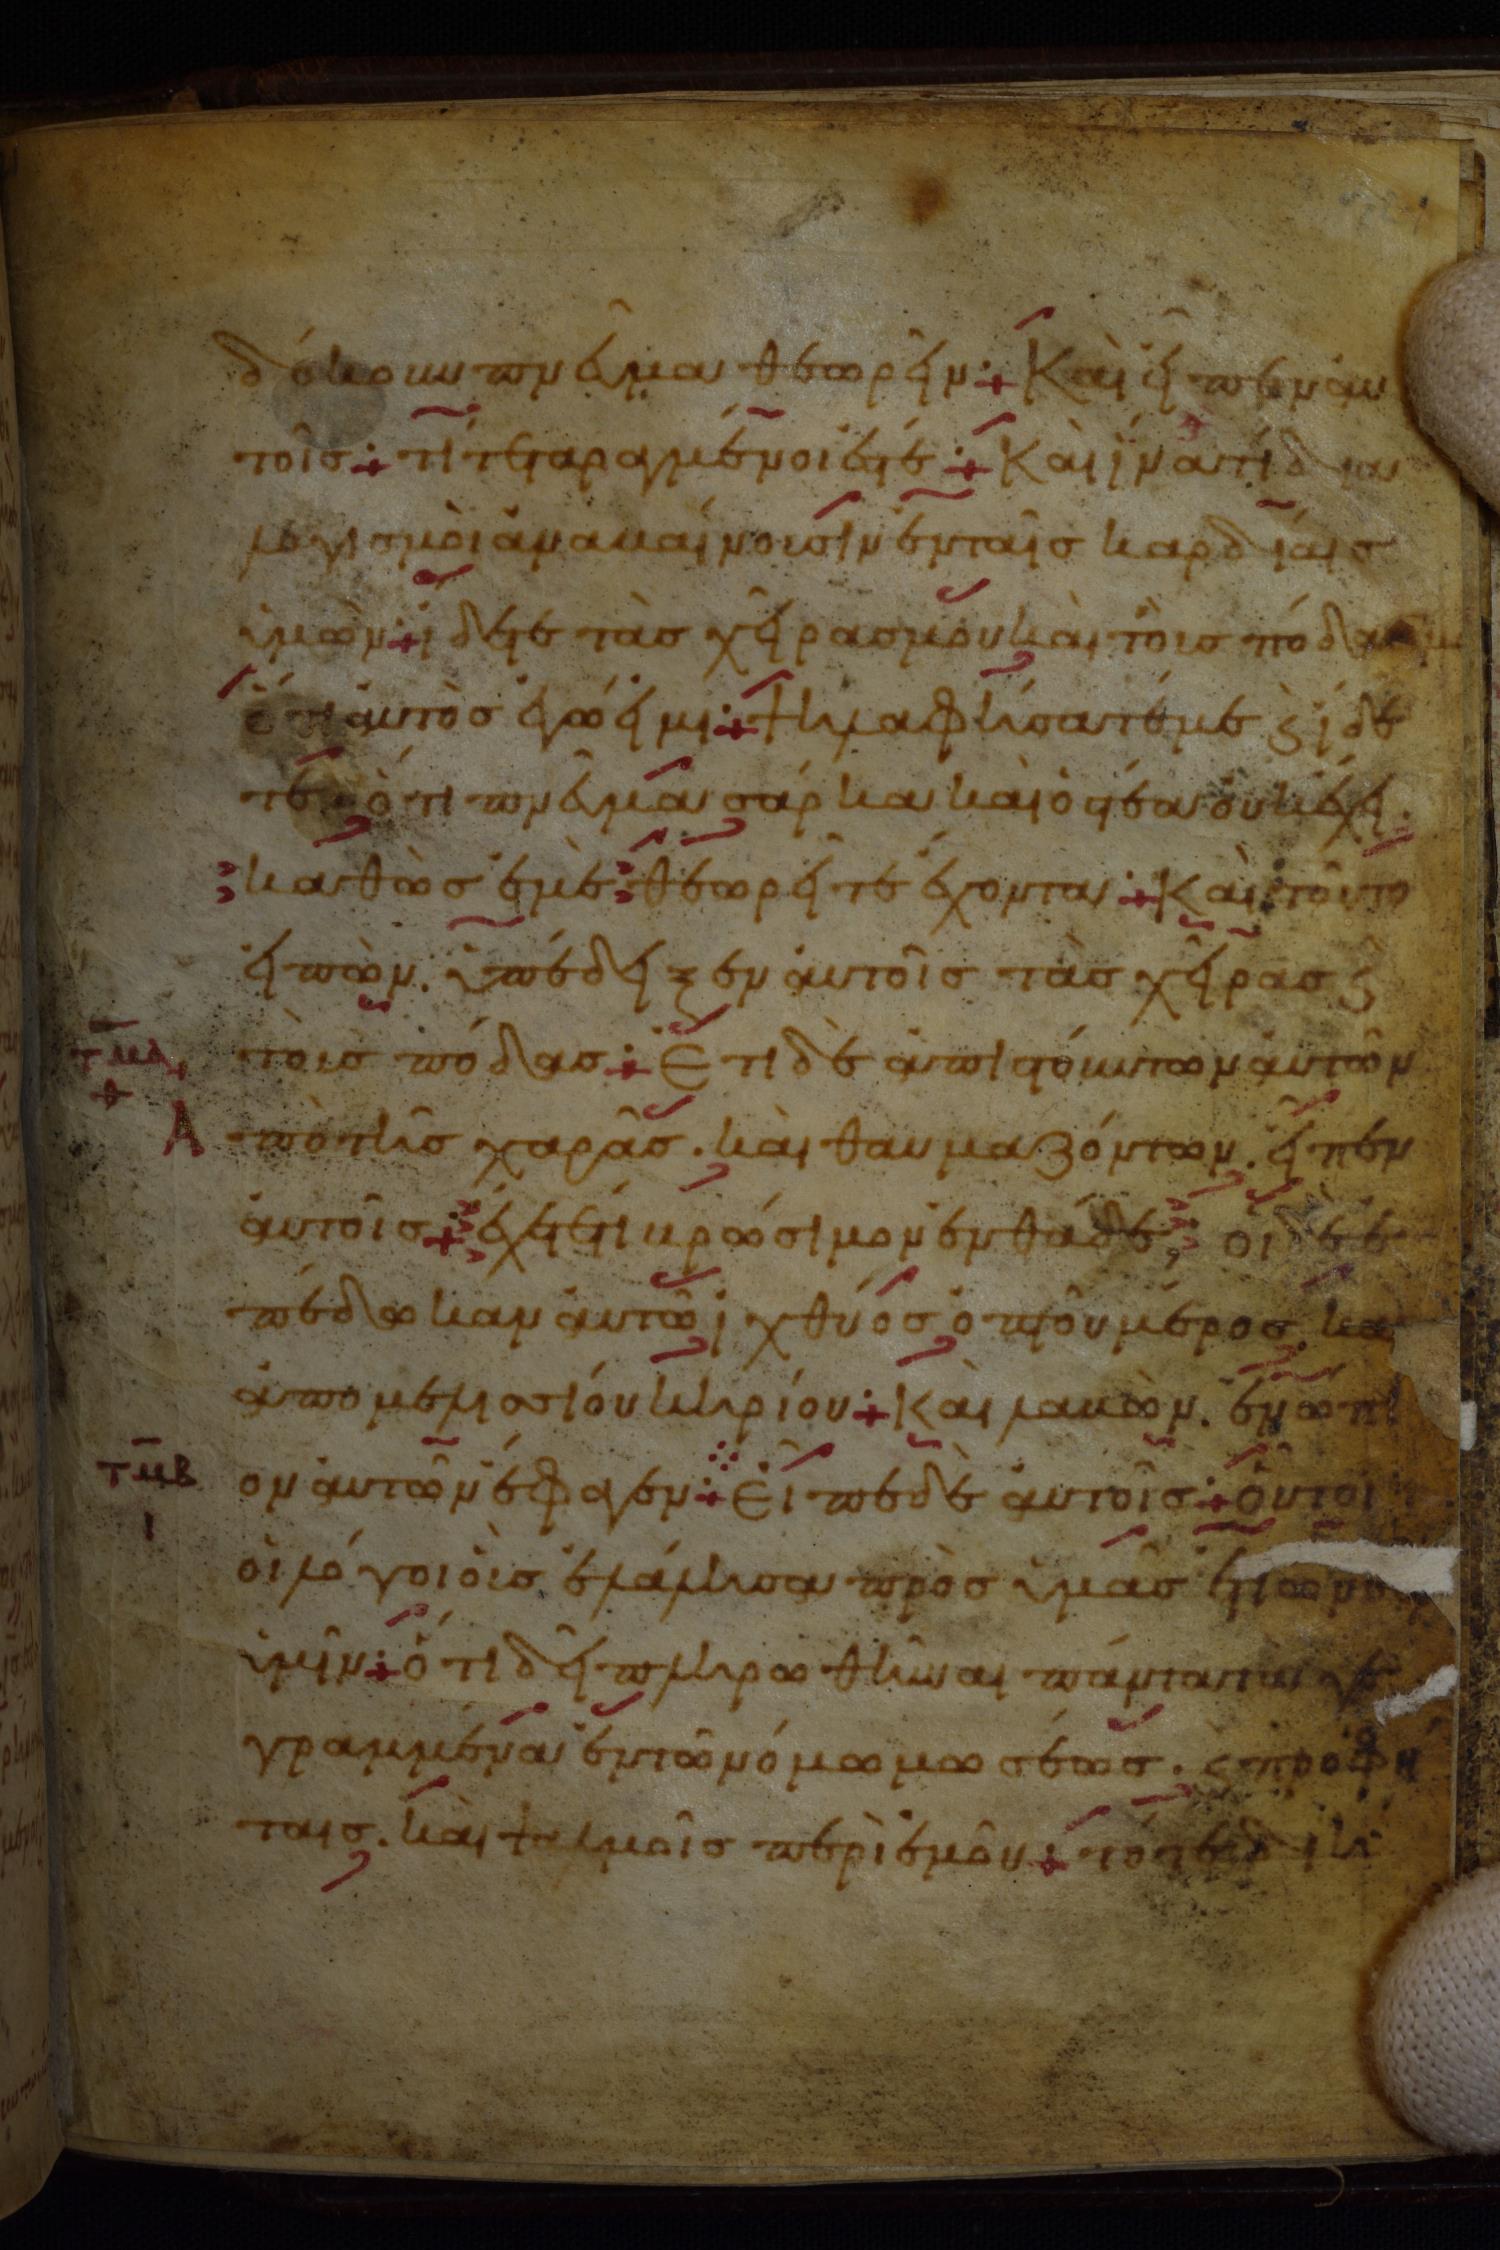 δόκουν πνεῦμα θεωρεῖν· Καὶ εἶπεν αὐ
τοῖς· τί τεταραγμένοι ἐστέ· Καὶ ἵνα τί δια
λογισμοὶ ἀναβαίνουσιν ἐν ταῖς καρδίαις
ὑμῶν· ἴδετε τὰς χεῖρας μου καὶ τοὺς πόδας μ
ὅτι αὐτὸς ἐγώ εἰμι· ψηλαφήσατέ με ϗ ἴδε
τε· ὅτι πνεῦμα σάρκα καὶ ὀστέα οὐκ ἔχει.
καθὼς ἐμὲ θεωρεῖτε ἔχοντα· Καὶ τοῦτο
εἰπὼν. ὑπέδειξεν αὐτοῖς τὰς χεῖρας ϗ
τοὺς πόδας· Ἔτι δὲ ἀπιστούντων αὐτῶν
τμα
θ
Ἀπὸ τῆς χαρᾶς. καὶ θαυμαζόντων. εἶπεν
αὐτοῖς· ἔχετέ τι βρώσιμον ἐνθάδε; οἱ δὲ ἐ
πέδωκαν αὐτῶ ἰχθύος ὀπτοῦ μέρος. κα
ἀπὸ μελισσίου κηρίου· Καὶ λαβὼν. ἐνώπι
ον αὐτῶν ἔφαγεν· Εἶπε δὲ αὐτοῖς· οὗτοι
τμβ
ι
οἱ λόγοι οὓς ἐλάλησα πρὸς ὑμᾶς ἔτι ὢν
ὑμῖν· ὅτι δεῖ πληρωθῆναι πάντα τα γε
γραμμένα ἐν τῶ νόμω μωσέως. ϗ προφη
ταις. καὶ ψαλμοῖς περὶ ἐμοῦ· τότε δ